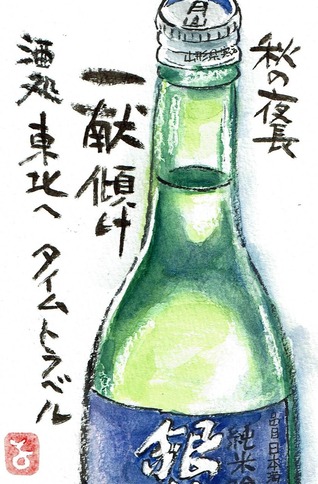 秋の夜長
一献傾け
酒処 東北へ タイムトラベル
月山
山形県寒河
銀
純米吟
日本酒